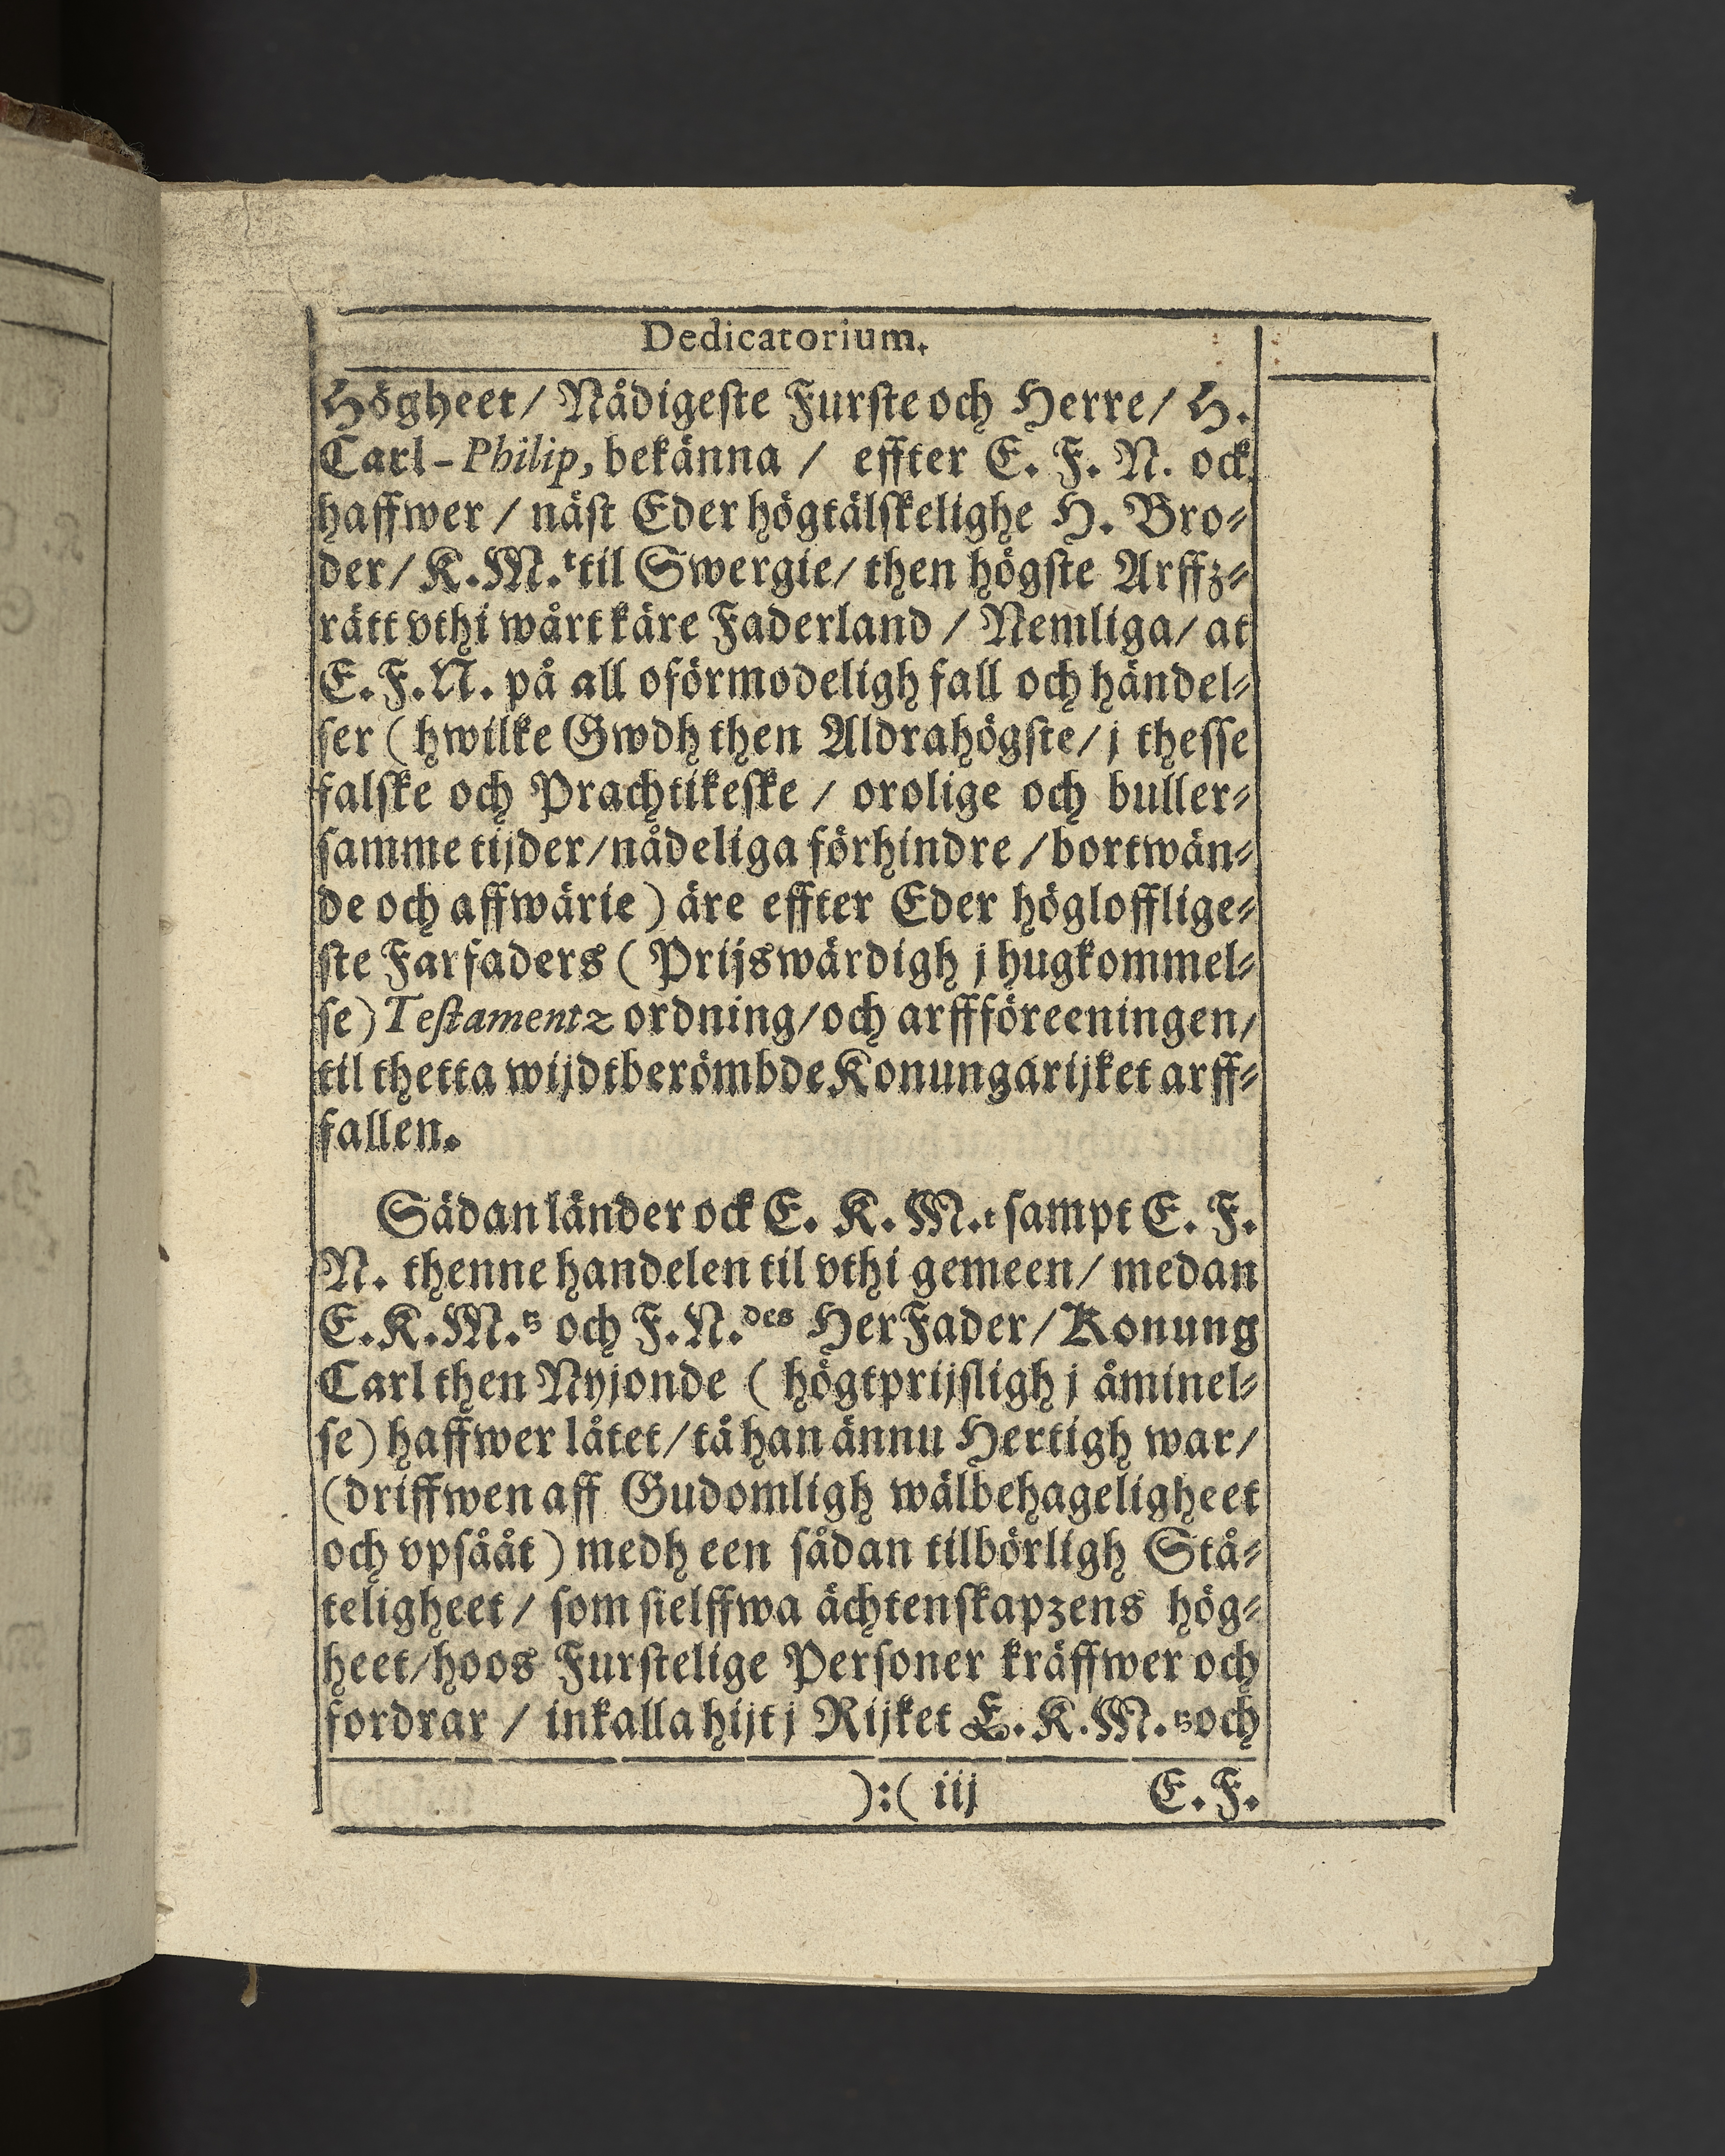 Dedicatorium.
Högheet/ Nådigeste Furste och Herre/ H.
Carl-Philip, bekänna / effter E. F. N. ock
haffwer / näst Eder högtälskelighe H. Bro-
der/ K. M.t til Swergie/ then högste Arffz-
rätt vthi wårt käre Faderland / Nemliga/ at
E. F. N. på all oförmodeligh fall och händel-
ser (hwilke Gwdh then Aldrahögste/ j thesse
falske och Prachtikeske / orolige och buller-
samme tijder/ nådeliga förhindre / bortwän-
de och affwärie) äre effter Eder höglofflige-
ste Farfaders (Prijswärdigh j hugkommel-
se) Testamentz ordning/ och arffföreeningen/
til thetta wijdtberömbde Konungarijket arff-
fallen.
Sådan länder ock E. K. M.t sampt E. F.
N. thenne handelen til vthi gemeen/ medan
E. K. M.tz och F. N.des Her Fader/ Konung
Carl then Nyjonde (högtprijsligh j åminel-
se) haffwer låtet/ tå han ännu Hertigh war/
(driffwen aff Gudomligh wälbehageligheet
och vpsååt) medh een sådan tilbörligh Stå-
teligheet/ som sielffwa ächtenskapzens hög-
heet/ hoos Furstelige Personer kräffwer och
fordrar / inkalla hijt j Rijket E. K. M.tz och
):( iij E. F.